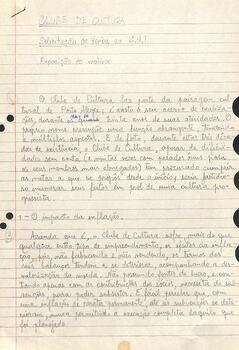 CLUBE DE CULTURA
Solicitação de Verba ao S.N.T.
Exposição de motivos
O Clube de Cultura faz parte da paisagem cul-
tural de Porto Alegre, é vasto o seu acervo de realiza-
ções, durante os quase trinta anos de suas atividades. O
próprio nome pressupõe uma função abrangente, tendendo
a múltiplos aspectos. E de fato, durante estas três déca-
das de existência, o Clube de Cultura, apesar de dificul-
dades sem conta (e muitas vezes com pesados ônus para
os seus membros mais abnegados) tem procurado cumprir
as metas a que se propôs desde o início; seria fastidio-
so enumerar seus feitos em prol de uma cultura pro-
gressista.
1 - O impacto da inflação.
Ainda ora é, o Clube de Cultura sofre, mais do que
qualquer outro tipo de empreendimento, os efeitos da infla-
ção, pois, não fabricando e não vendendo, os termos dos
seus balanços tendem a se deteriorar, acompanhando a des-
valorização da moeda. Não possuindo fontes de lucro, e con-
tando apenas com as contribuições dos sócios, necessita de sub-
venções, para poder subsistir. É fácil perceber que, com
uma inflação de noventa por cento, até as subvenções se dete-
rioram, nunca permitindo a execução completa daquilo que
foi planejado.